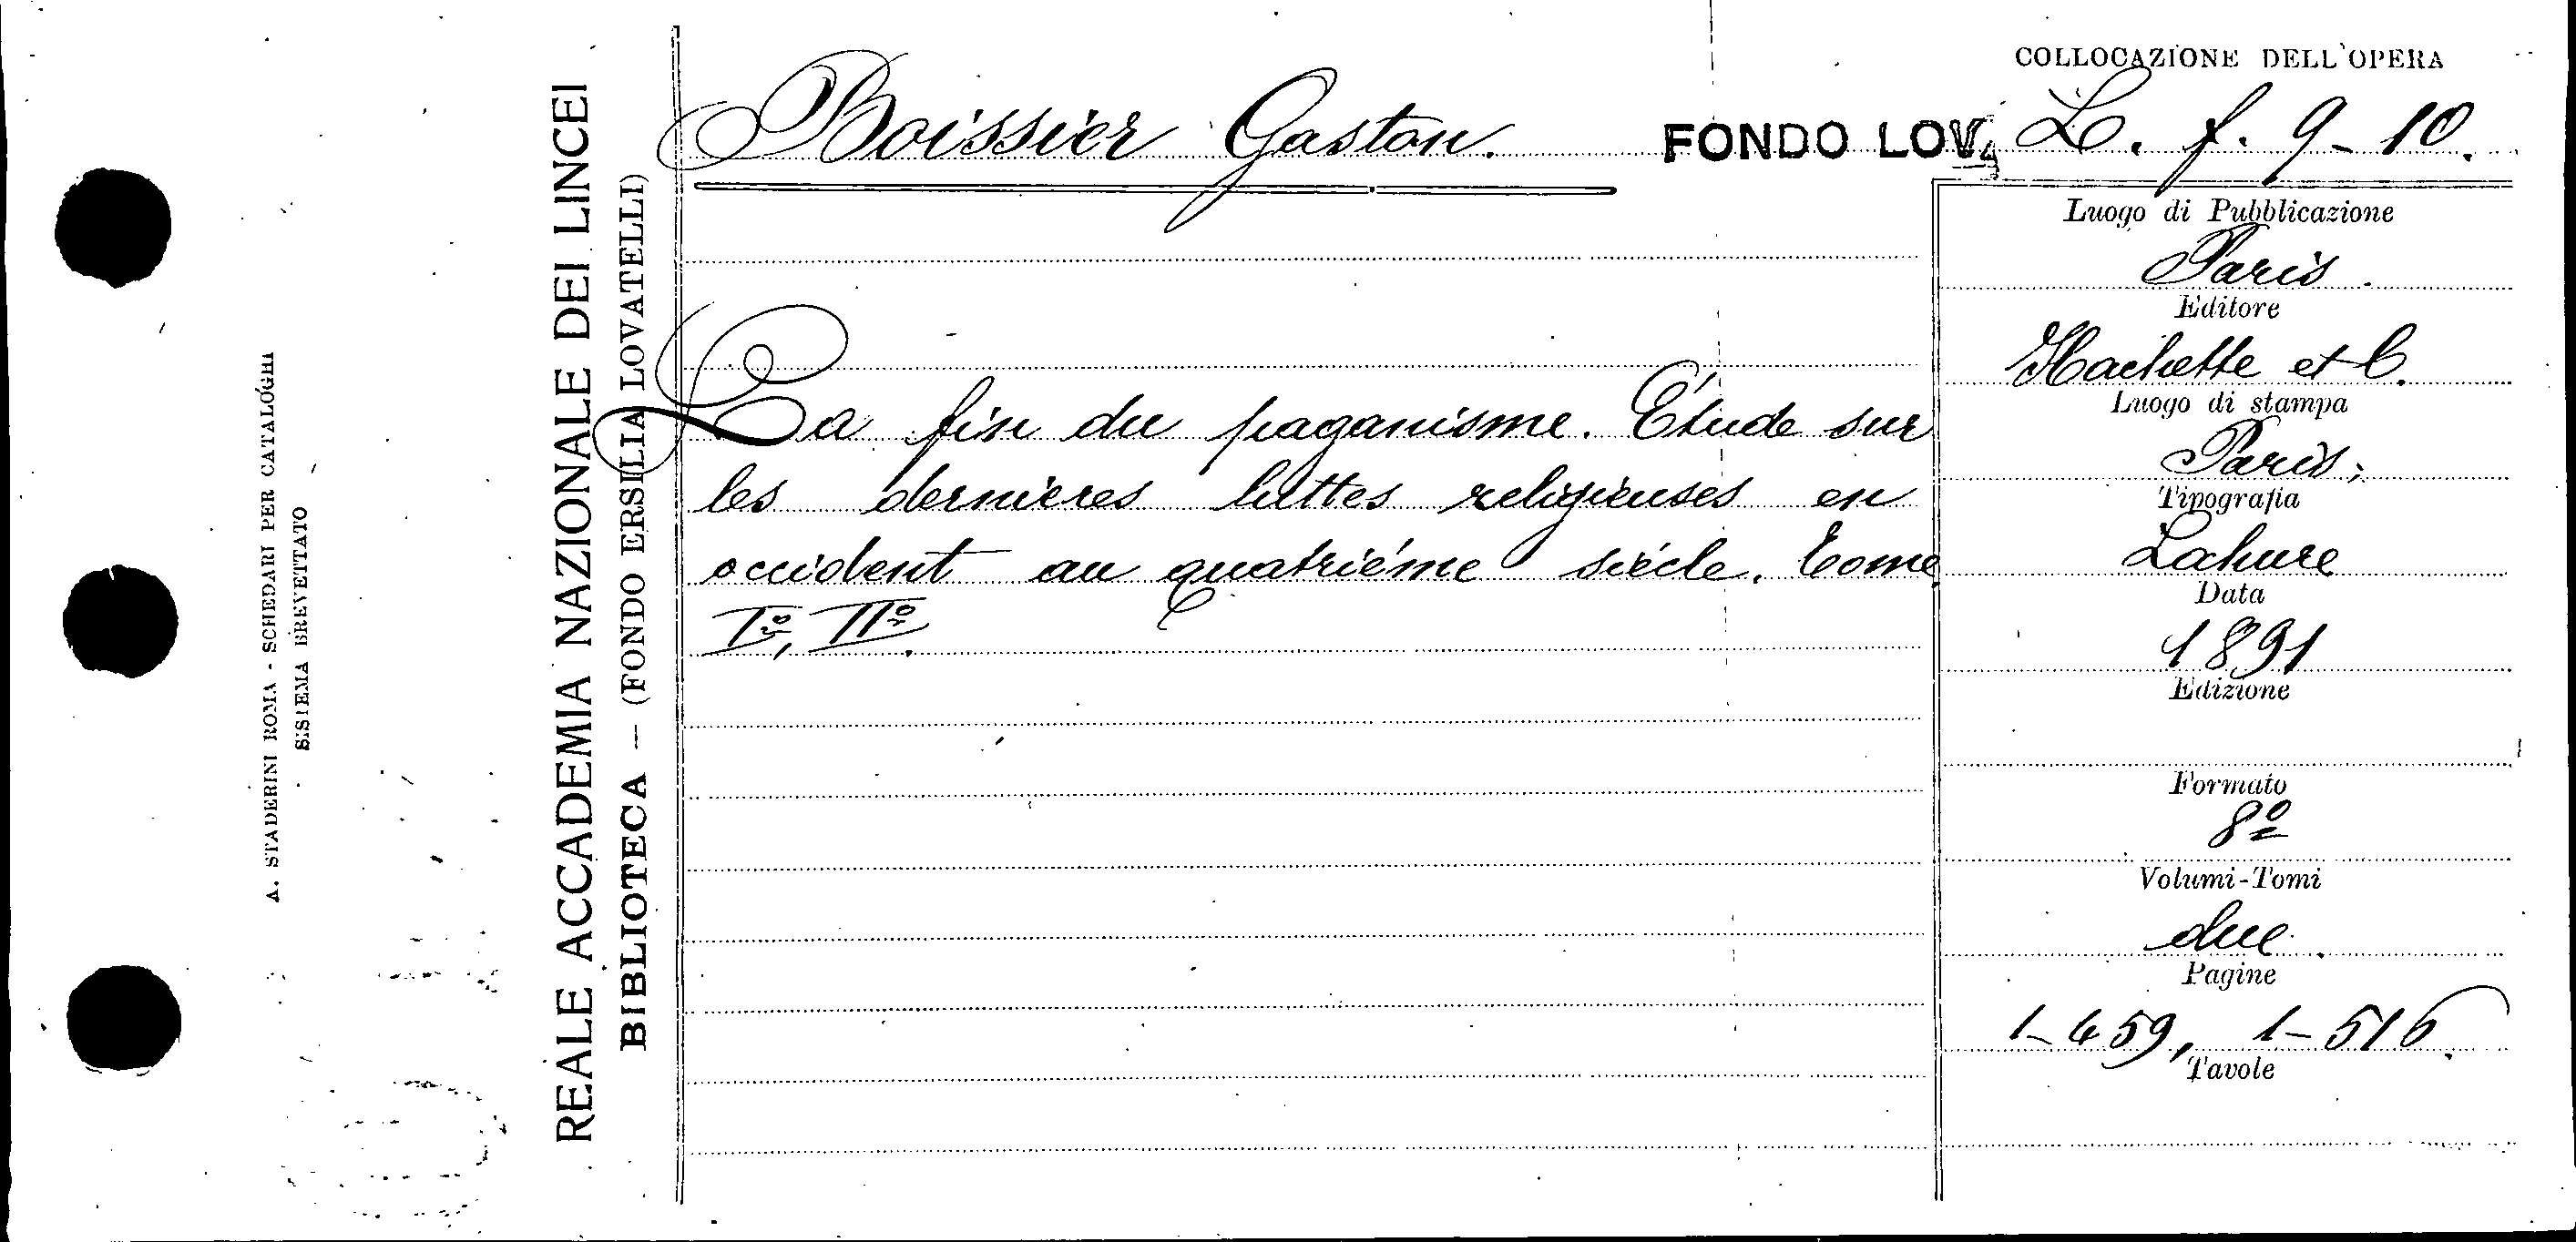 A. STADERINI ROMA - SCHEDARI PER CATALOGHI
SISTEMA BREVETTATO
REALE ACCADEMIA NAZIONALE DEI LINCEI
BIBLIOTECA — (FONDO ERSILIA LOVATELLI)
Boissier Gaston.
FONDO LOV.
COLLOCAZIONE DELL'OPERA
L. f. 9-10.
La fin du paganisme. Étude sur
les dernieres luttes religieuses en
occident au quatriéme siécle. Tome
I°, II°.
Luogo di Pubblicazione
Paris.
Editore
Hachette et C.
Luogo di stampa
Paris;
Tipografia
Lahure
Data
1891
Edizione
Formato
8°
Volumi-Tomi
due.
Pagine
1-459, 1-516.
Tavole